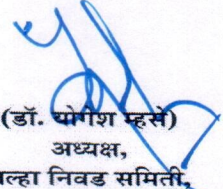 (डॉ. योगेश म्हसे)
अध्यक्ष,
ल्हा निवड समिती,